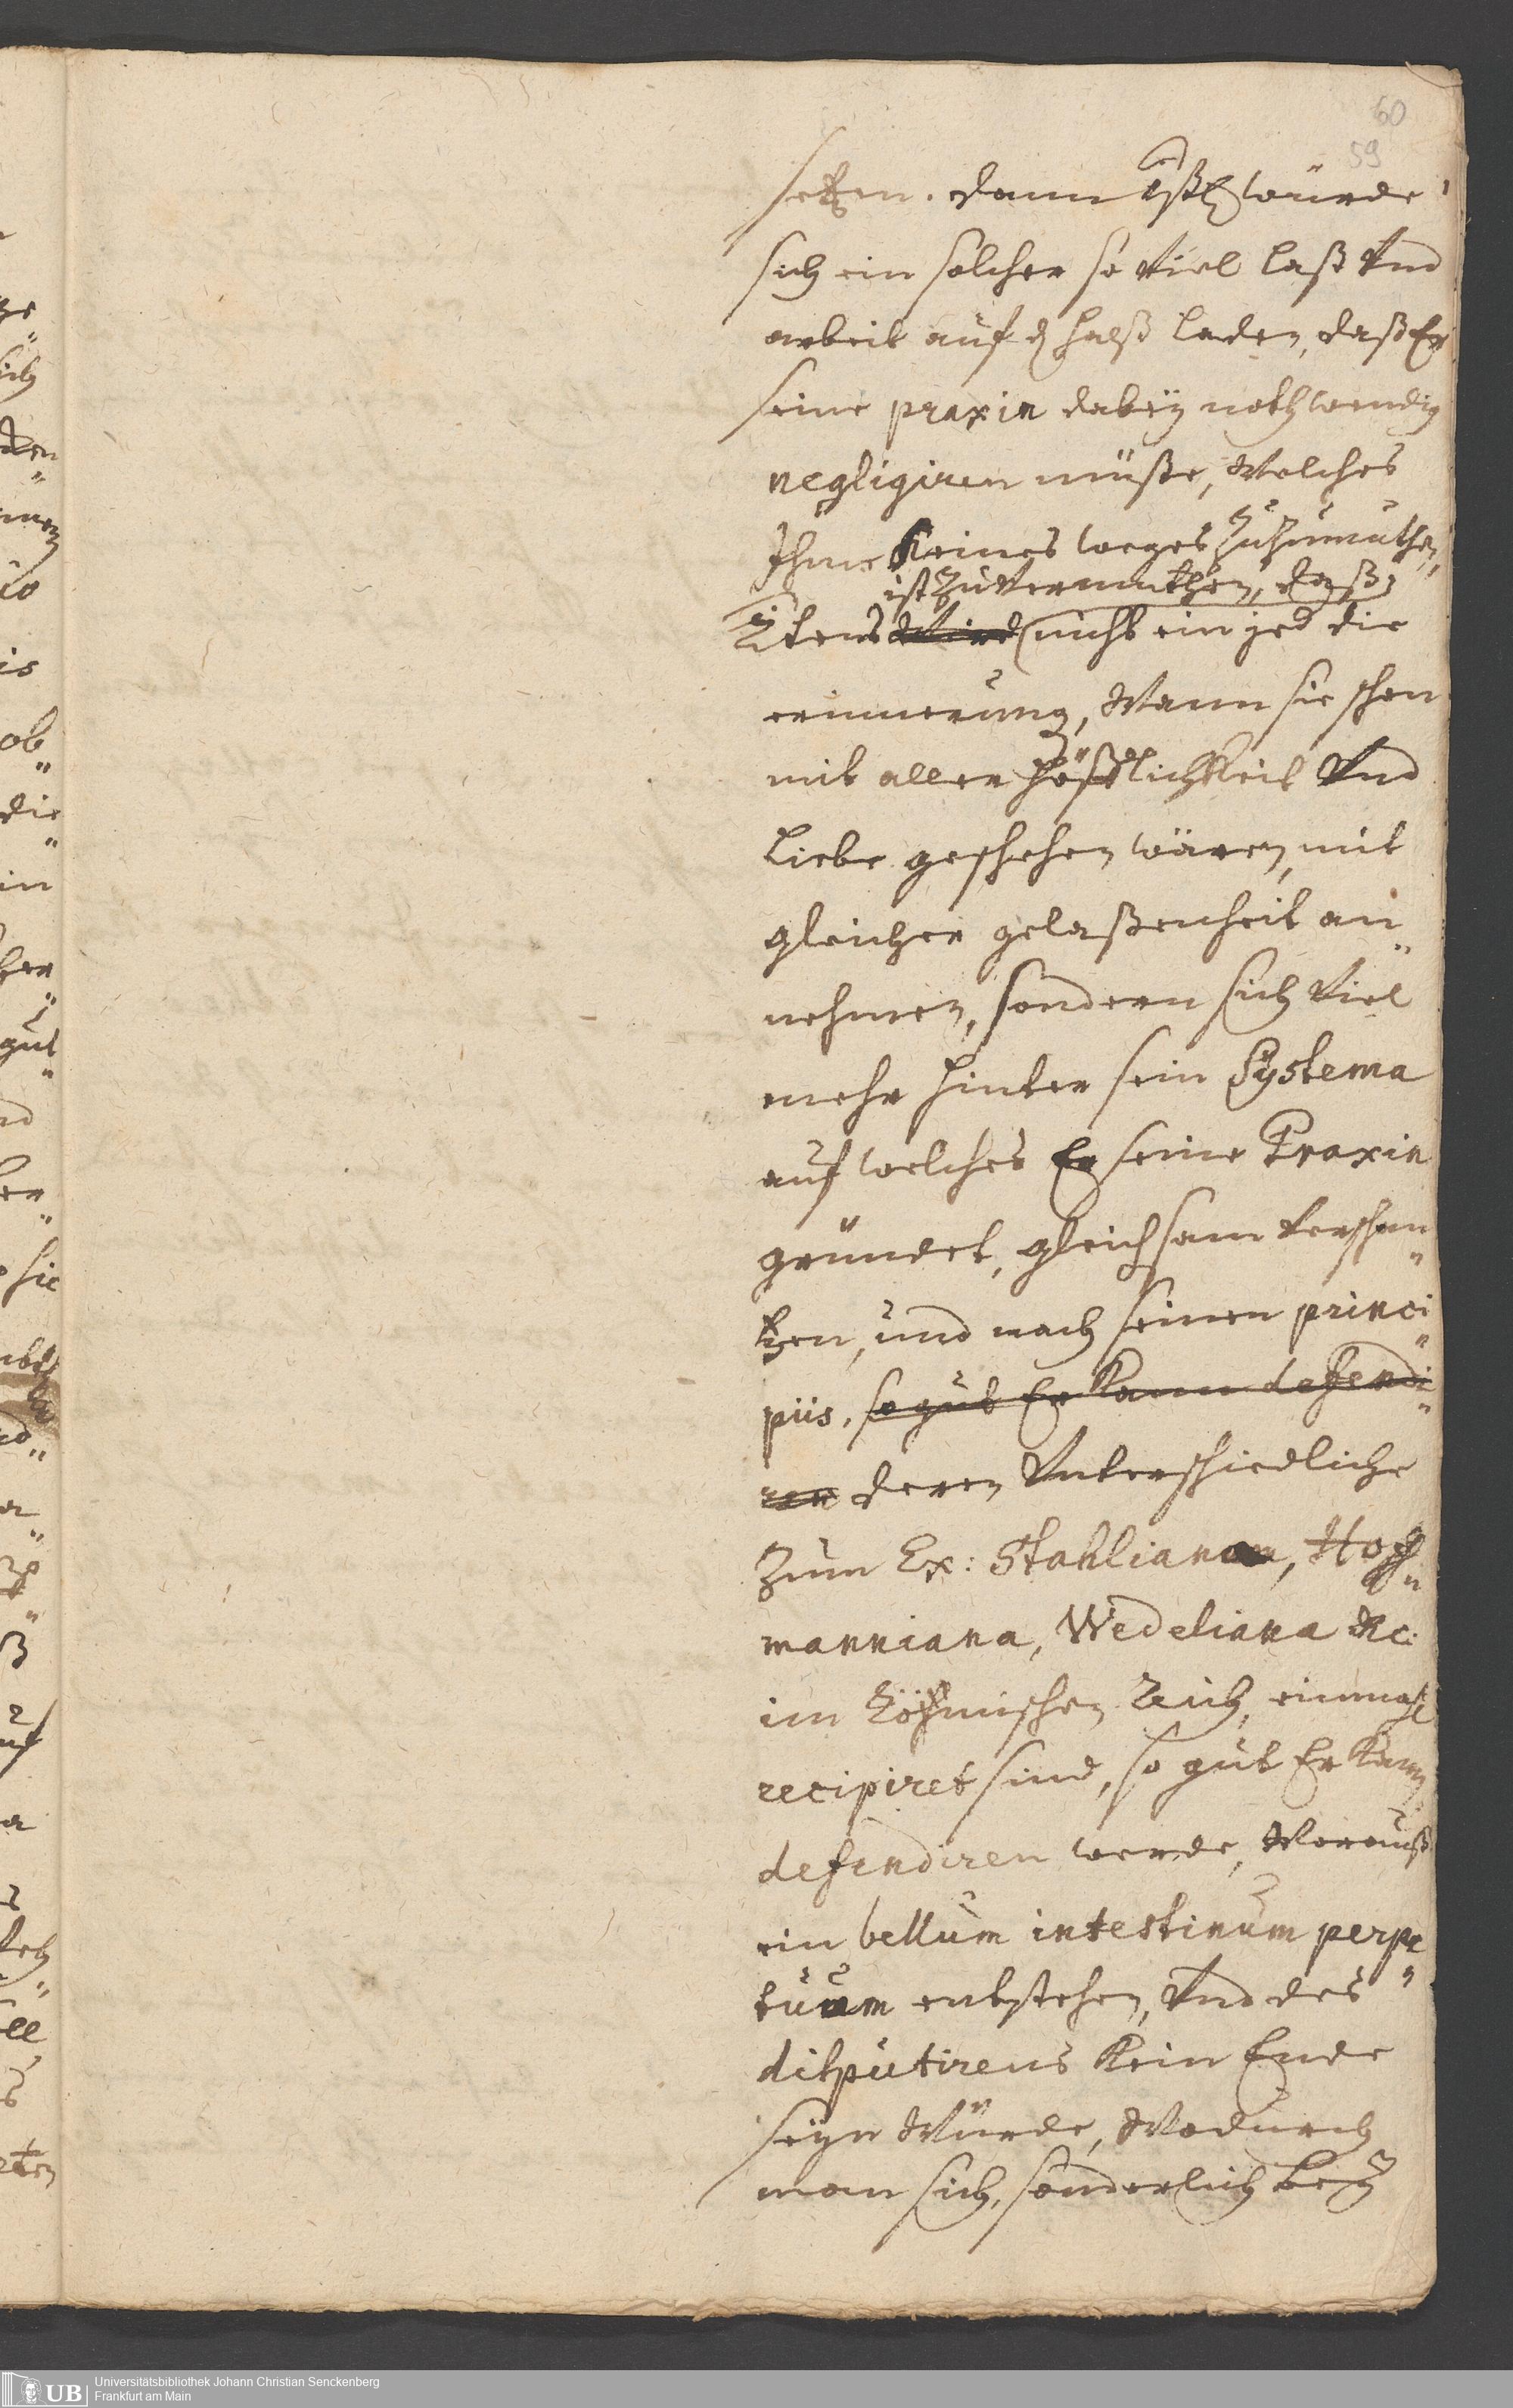 60
59
setzen. dann 1stl. würde
sich ein solcher so viel last vnd
arbeit auf d. halß laden, daß Er
seine praxin dabeÿ nothwendig
negligiren müßte, Welches
Ihme keines weges zuzumuthen,
ist zu vermuthen, daß,
2tens wird nicht ein jed die
erinnerung, Wann sie schon
mit aller höfflichkeit Vnd
Liebe geschehen wären, mit
gleicher gelaßenheit an„
nehmen, sondern sich viel
mehr hinter sein Systema
auf welches Er seine Praxin
gründet, gleichsam verschan„
tzen, und nach seinen princi„
piis, so gut Er kann defendi„
ren deren Vnterschiedliche
Zum Ex: Stahliana, Hoff„
manniana, Wedeliana &c:
im Römischen Reich, einmahl
recipiret sind, so gut Er kann
defendiren werde, Worauß
ein bellum intestinum perpe„
tuum entstehen, Vnd des
disputirens kein Ende
seÿn Würde, Wodurch
man sich, sonderlich beÿ
Universitätsbibliothek Johann Christian Senckenberg
Frankfurt am Main
UB